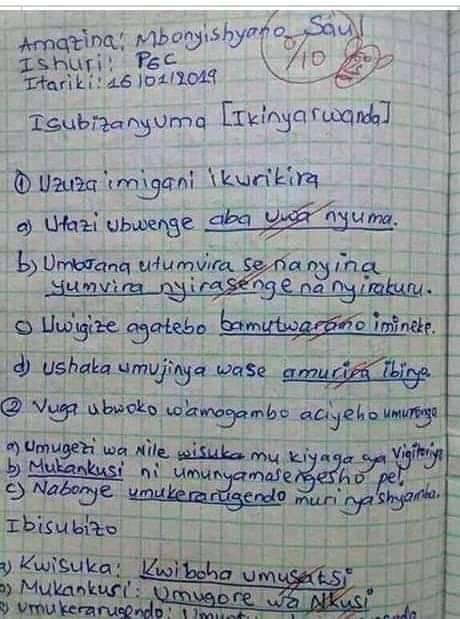 Amazina: Mbonyishyano Saul
Ishuri: P6C
0/10
Itariki: 16/01/2019
Isubizanyuma [Ikinyarwanda]
① Uzuza imigani ikurikira
a) Utazi ubwenge aba uwa nyuma.
b) Umwana utumvira se na nyina
yumvira nyirasenge na nyirakuru.
c) Uwigize agatebo bamutwaramo imineke.
d) ushaka umujinya wase amurira ibirya
② Vuga ubwoko bw'amogambo aciyeho umurongo
a) Umugezi wa Nile wisuka mu kiyaga cya Vigitoriya
b) Mukankusi ni umunyamasengesho pe!
c) Nabonye umukerarugendo muri nyashyamba.
Ibisubizo
a) Kwisuka: Kwiboha umusatsi
b) Mukankusi: Umugore wa Nkusi
c) umukerarugendo: